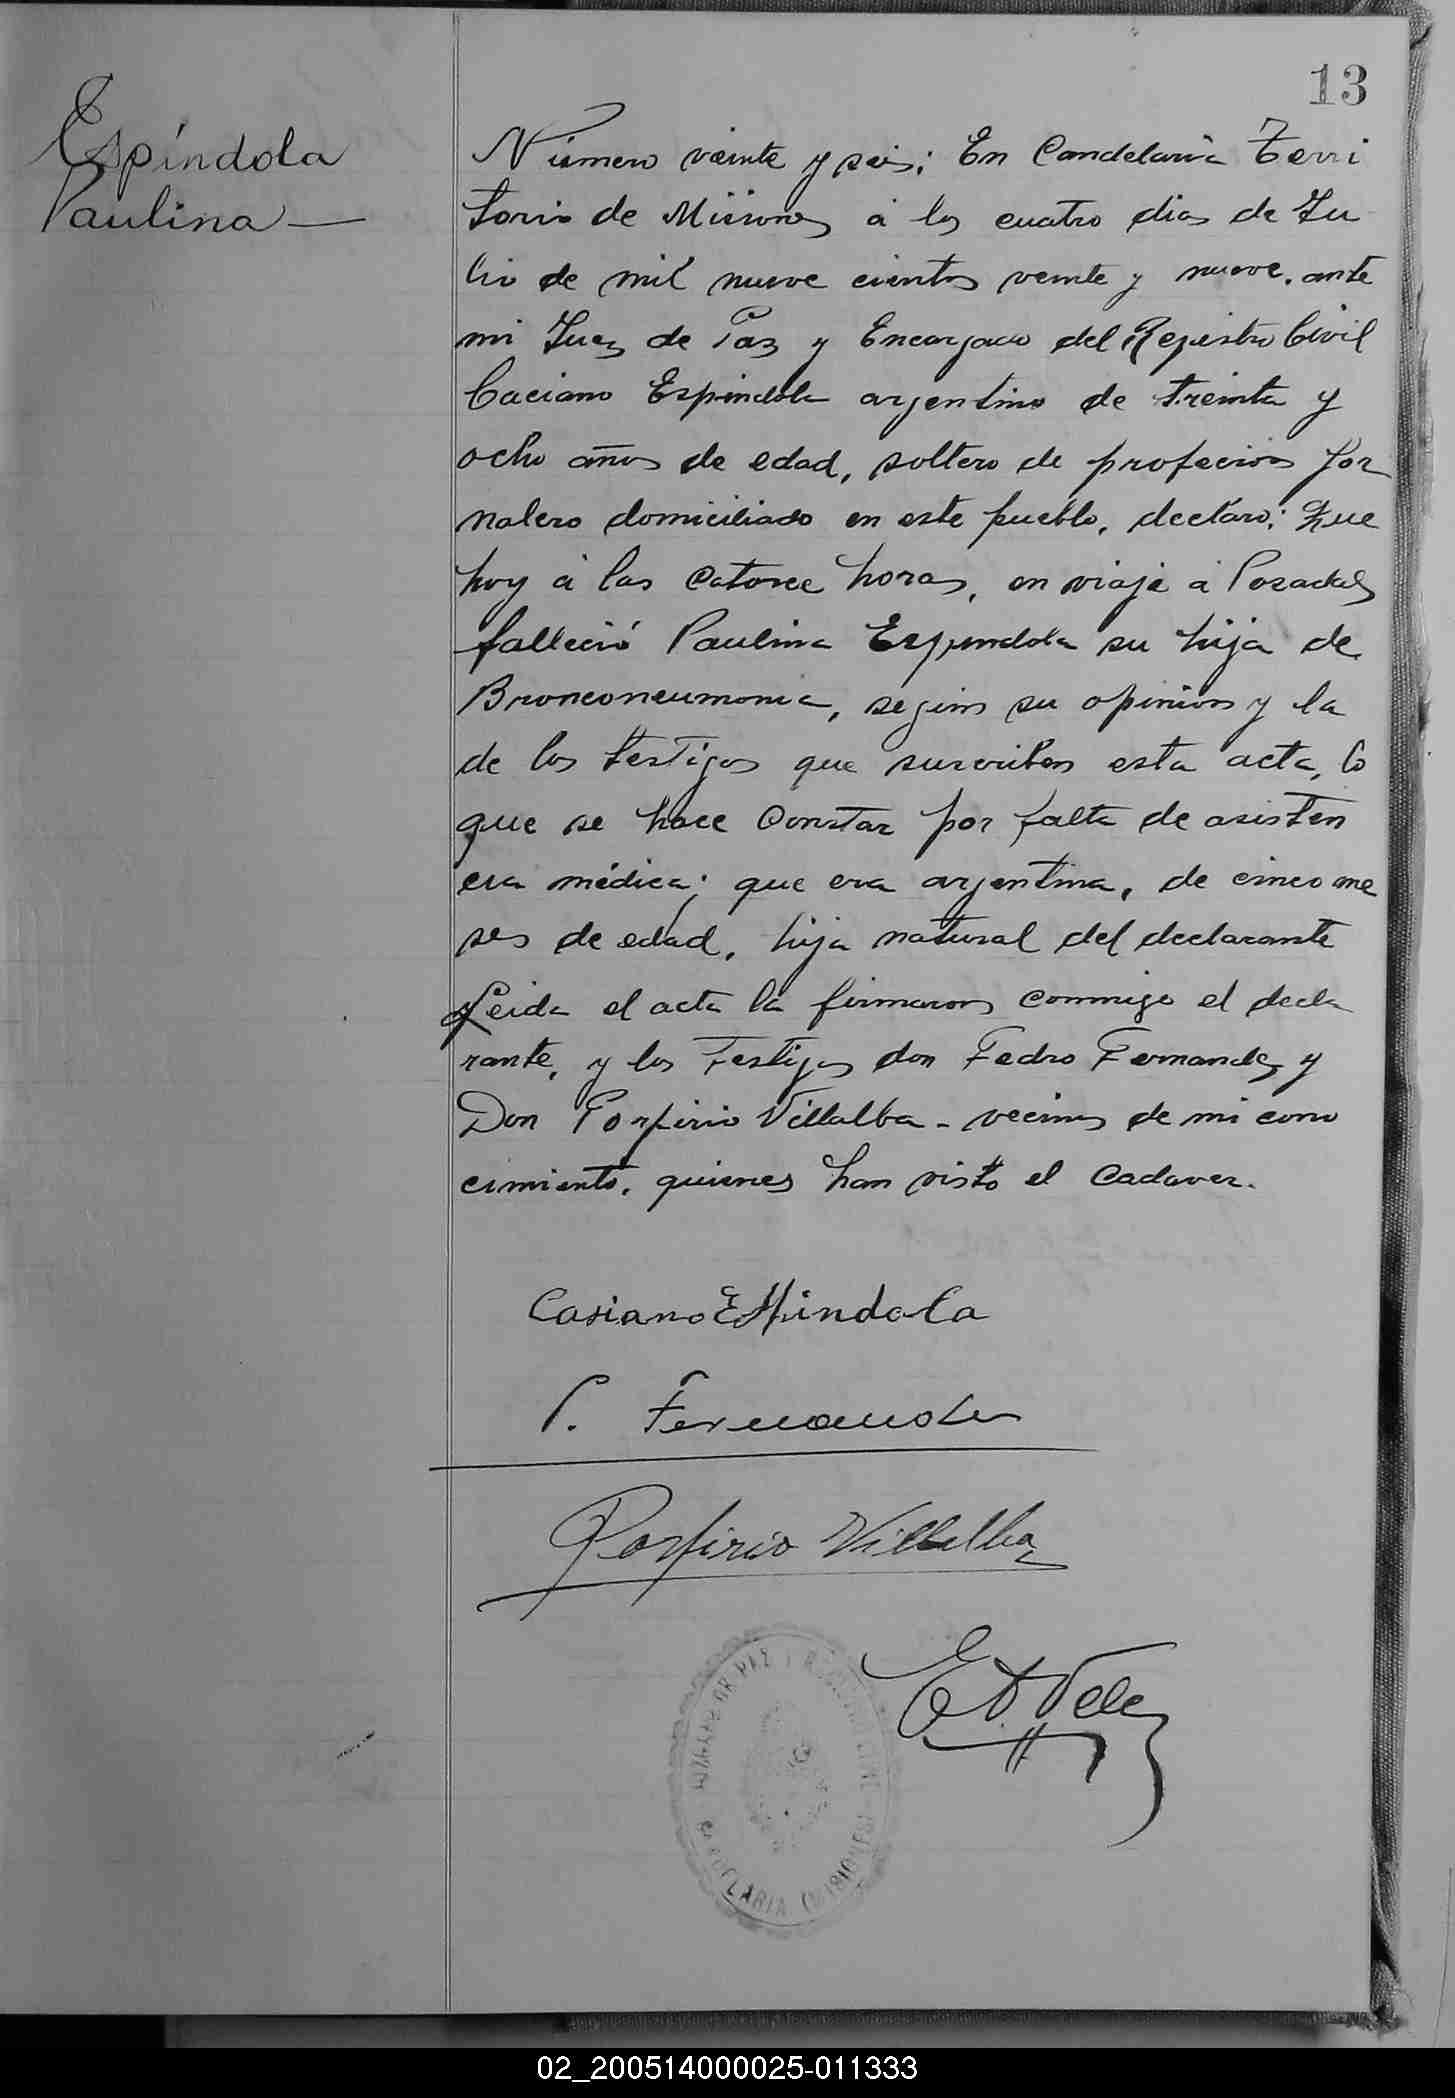 13
Espíndola
Paulina —
Número veinte y seis; En Candelaria Terri
torio de Misiones á los cuatro dias de Ju
lio de mil nueve cientos veinte y nueve. ante
mi Juez de Paz y Encargado del Registro Civil
Caciano Espindola argentino de treinta y
ocho años de edad, soltero de profecion jor
nalero domiciliado en este pueblo, declaró; Que
hoy á las catorce horas, en viaje á Posadas
falleció Paulina Espindola su hija de
Bronconeumonia, segun su opinion y la
de los testigos que suscriben esta acta, lo
que se hace constar por falta de asisten
cia médica; que era argentina, de cinco me
ses de edad, hija natural del declarante
Leida el acta la firmaron conmigo el decla
rante, y los Testigos don Pedro Fernandez y
Don Porfirio Villalba - vecinos de mi cono
cimiento, quienes han visto el cadaver.
Casiano Espindola
P. Fernandez
Porfirio Villalba
E. A. Velez
JUZGADO DE PAZ Y REGISTRO CIVIL
CANDELARIA (MISIONES)
02_200514000025-011333